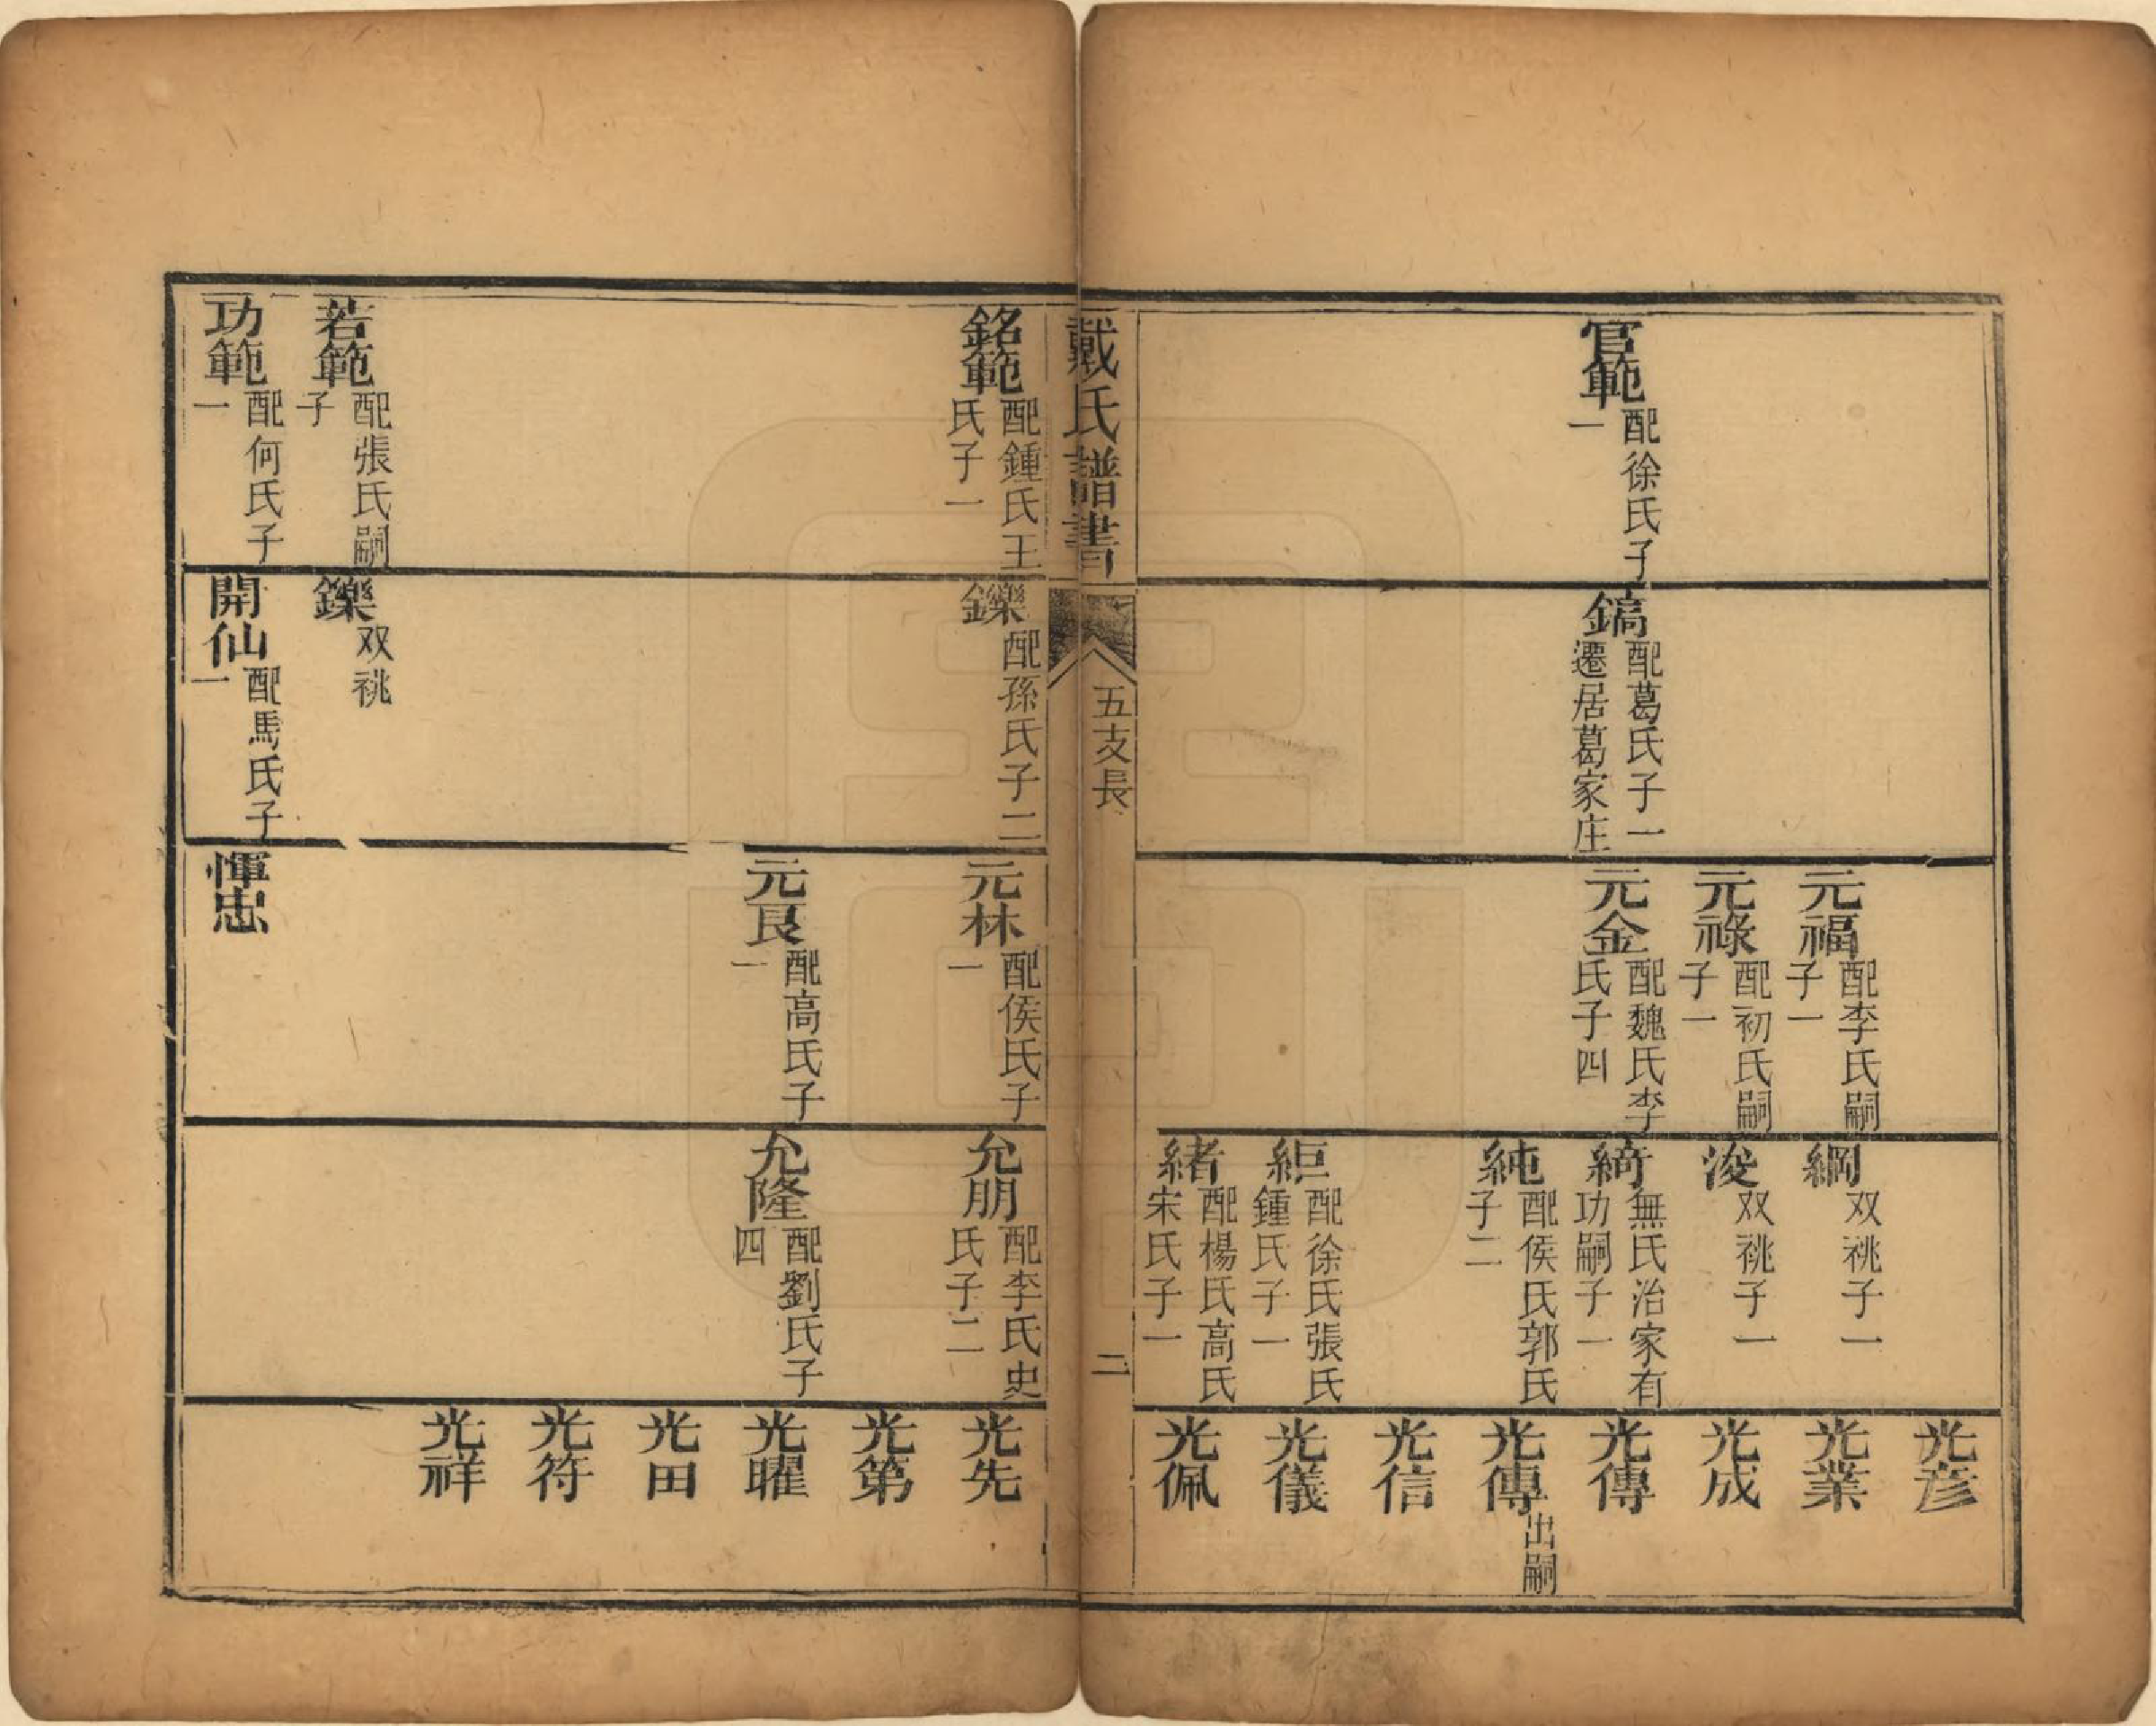 官範 配徐氏子一
鎬 配葛氏子一遷居葛家庄
元福 配李氏嗣子一
元祿 配初氏嗣子一
元金 配魏氏李氏子四
綱 双祧子一
浚 双祧子一
綺 無氏治家有功嗣子一
純 配侯氏郭氏子二
絙 配徐氏張氏鍾氏子一
緒 配楊氏高氏宋氏子一
光彦
光業
光成
光傳
光傳 出嗣
光信
光儀
光佩
戴氏譜書
五支長
二
銘範 配鍾氏王氏子一
若範 配張氏嗣子
功範 配何氏子一
鑠 配孫氏子二
鑠 双祧
開仙 配馬氏子一
元林 配侯氏子一
元良 配高氏子一
惲忠
允朋 配李氏史氏子二
允隆 配劉氏子四
光先
光第
光曜
光田
光符
光祥